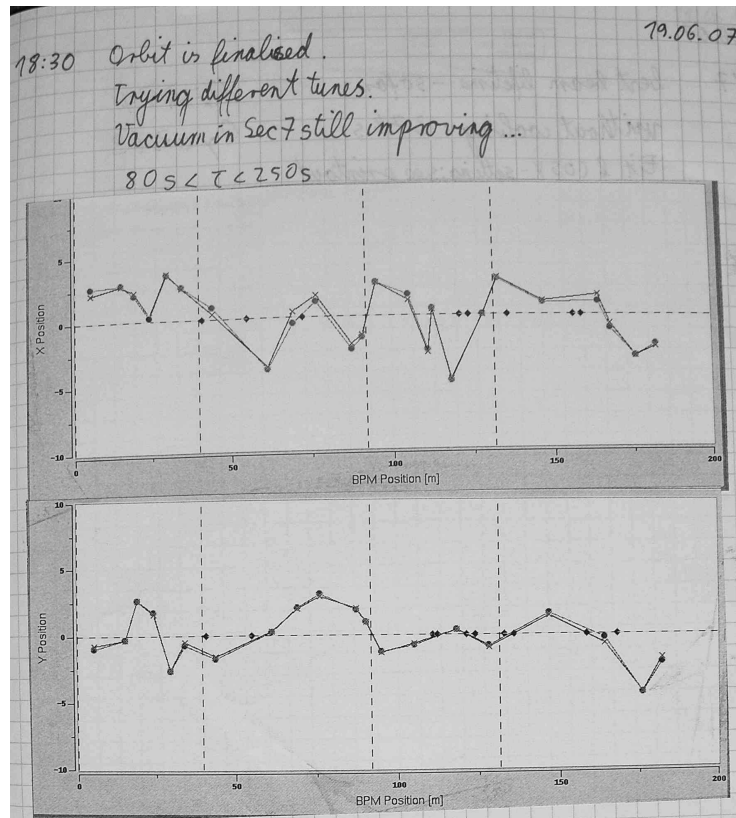 19.06.07
18:30 Orbit is finalised.
Trying different tunes.
Vacuum in Sec 7 still improving ...
80s < τ < 250s
5
0
-5
-10
X Position
0 50 100 150 200
BPM Position [m]
10
5
0
-5
-10
Y Position
0 50 100 150 200
BPM Position [m]